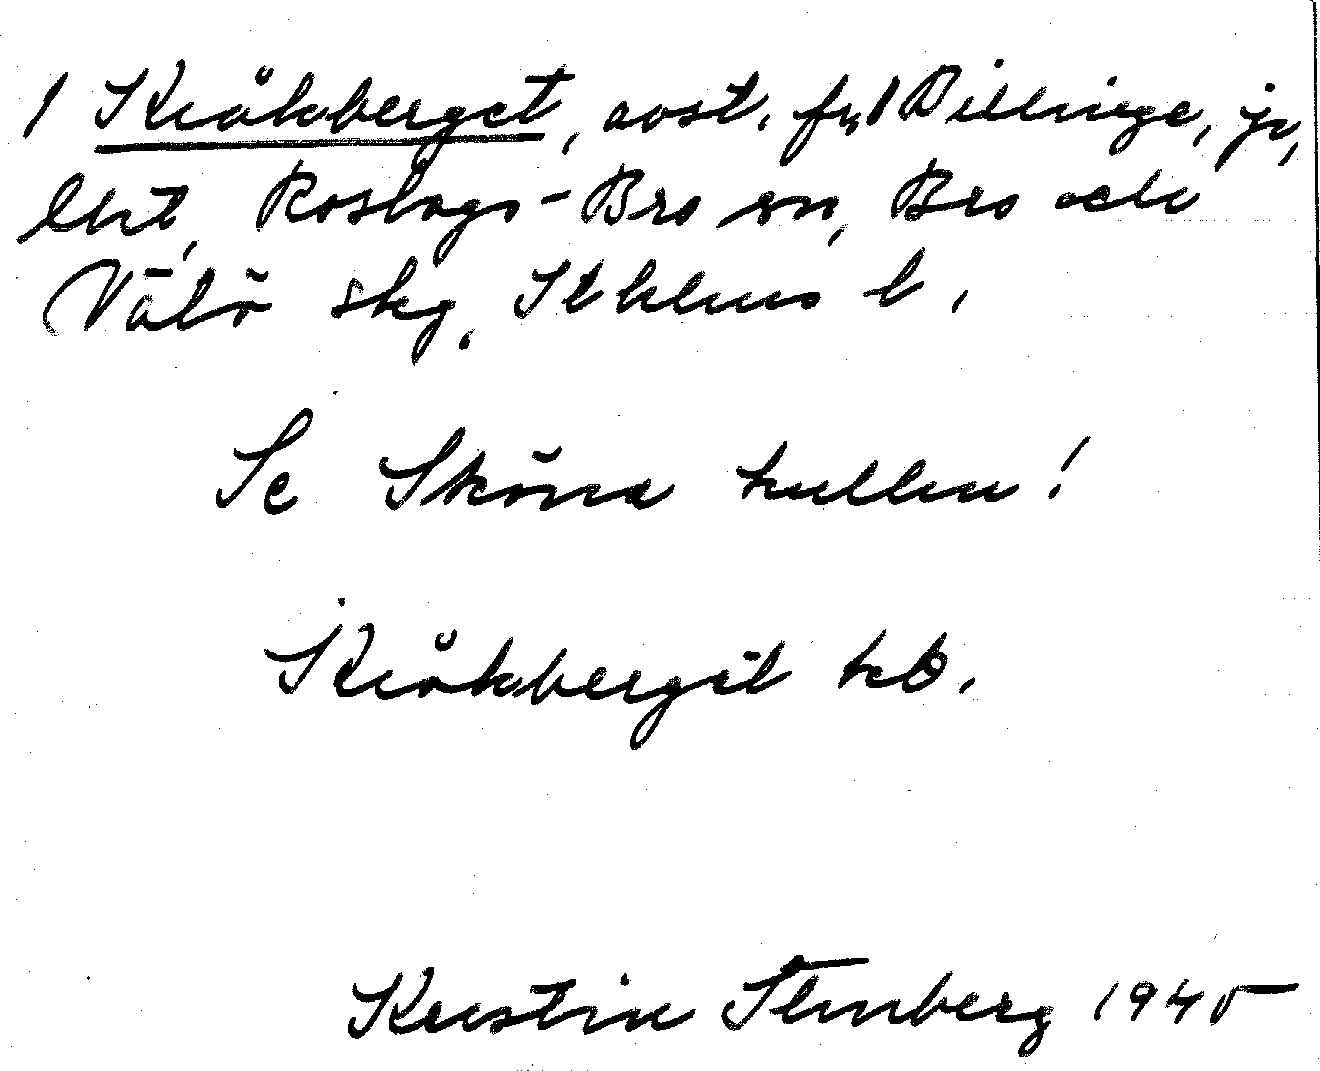 1 Kråkberget, avst. fr. 1 Billinge, jv,
lht, Roslags-Bro sn, Bro och
Vätö skg. Sthlms l.
Se Sköna kullen!
Kråkberget kb.
Kerstin Stenberg 1945